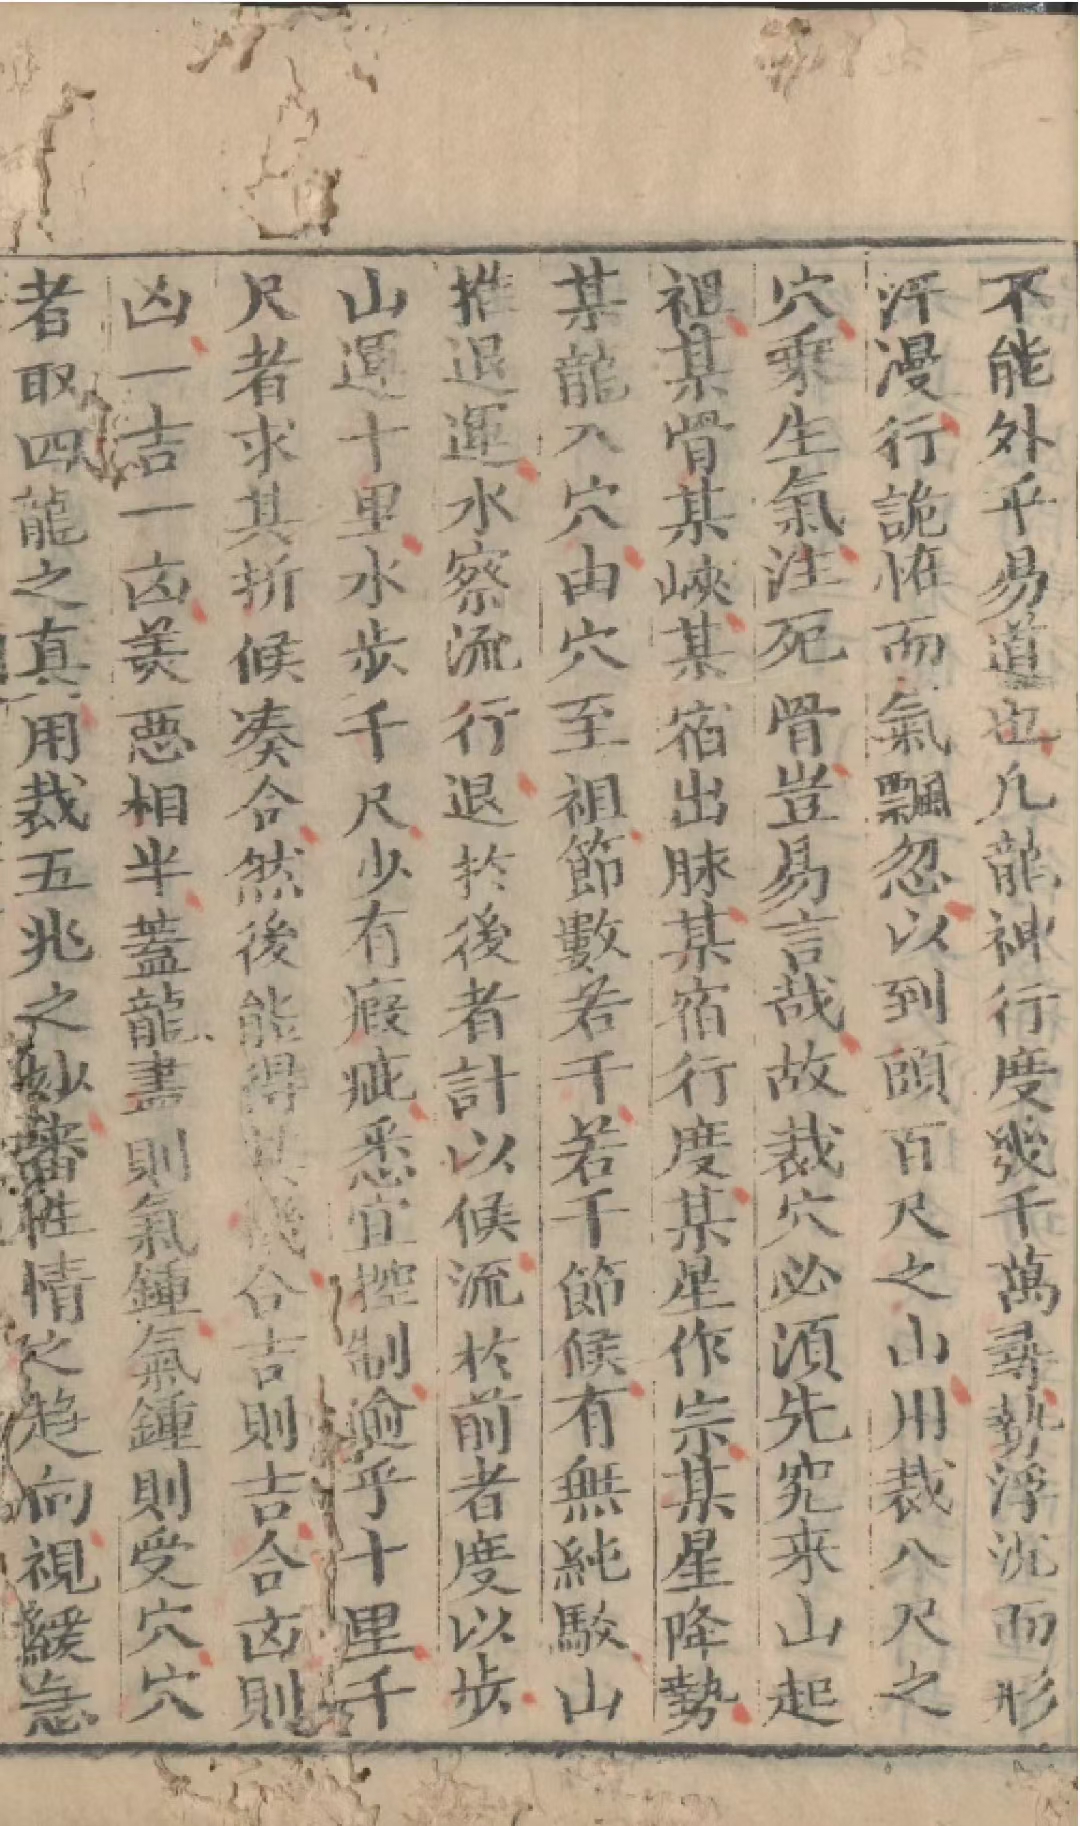 不能外乎易道也凡龍神行度幾千萬尋勢浮沉而形
汗漫行詭怪而氣飄忽以到頭百尺之山用裁八尺之
穴乘生氣注死骨豈易言哉故裁穴必須先究来山起
祖某骨某峽某宿出脉某宿行度某星作宗某星降勢
某龍入穴由穴至祖節數若干若干節候有無純駁山
推退運水察流行退於後者計以候流於前者度以步
山運十里水步千尺少有瘕疵悉宜控制逾乎十里千
尺者求其折候凑合然後能得其機合吉則吉合凶則
凶一吉一凶美惡相半蓋龍盡則氣鍾氣鍾則受穴穴
者取四龍之真用裁五兆之妙審性情之趋向視緩急